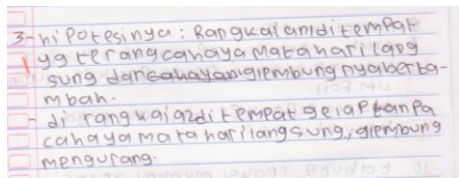 3- hipotesinya : Rangkaian 1 ditempat
yg terang cahaya matahari lang
sung glembungnya berta-
mbah.
- di rangkaian 2 ditempat gelap tanpa
cahaya matahari langsung, glembung
mengurang.